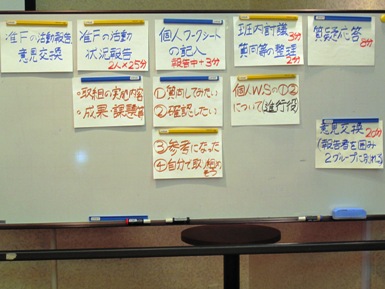 准Fの活動報告
意見交換
准Fの活動
状況報告
2人×25分
個人ワークシート
の記入
報告中+3分
班内討議
3分
質問等の整理
2分
質疑応答
8分
・取組の実施内容
・成果・課題等
①質問してみたい
②確認したい
個人W.Sの①②
について(進行役)
③参考になった
④自分で取り組め
そう
意見交換 20分
(報告者を囲み
2グループに別れる)